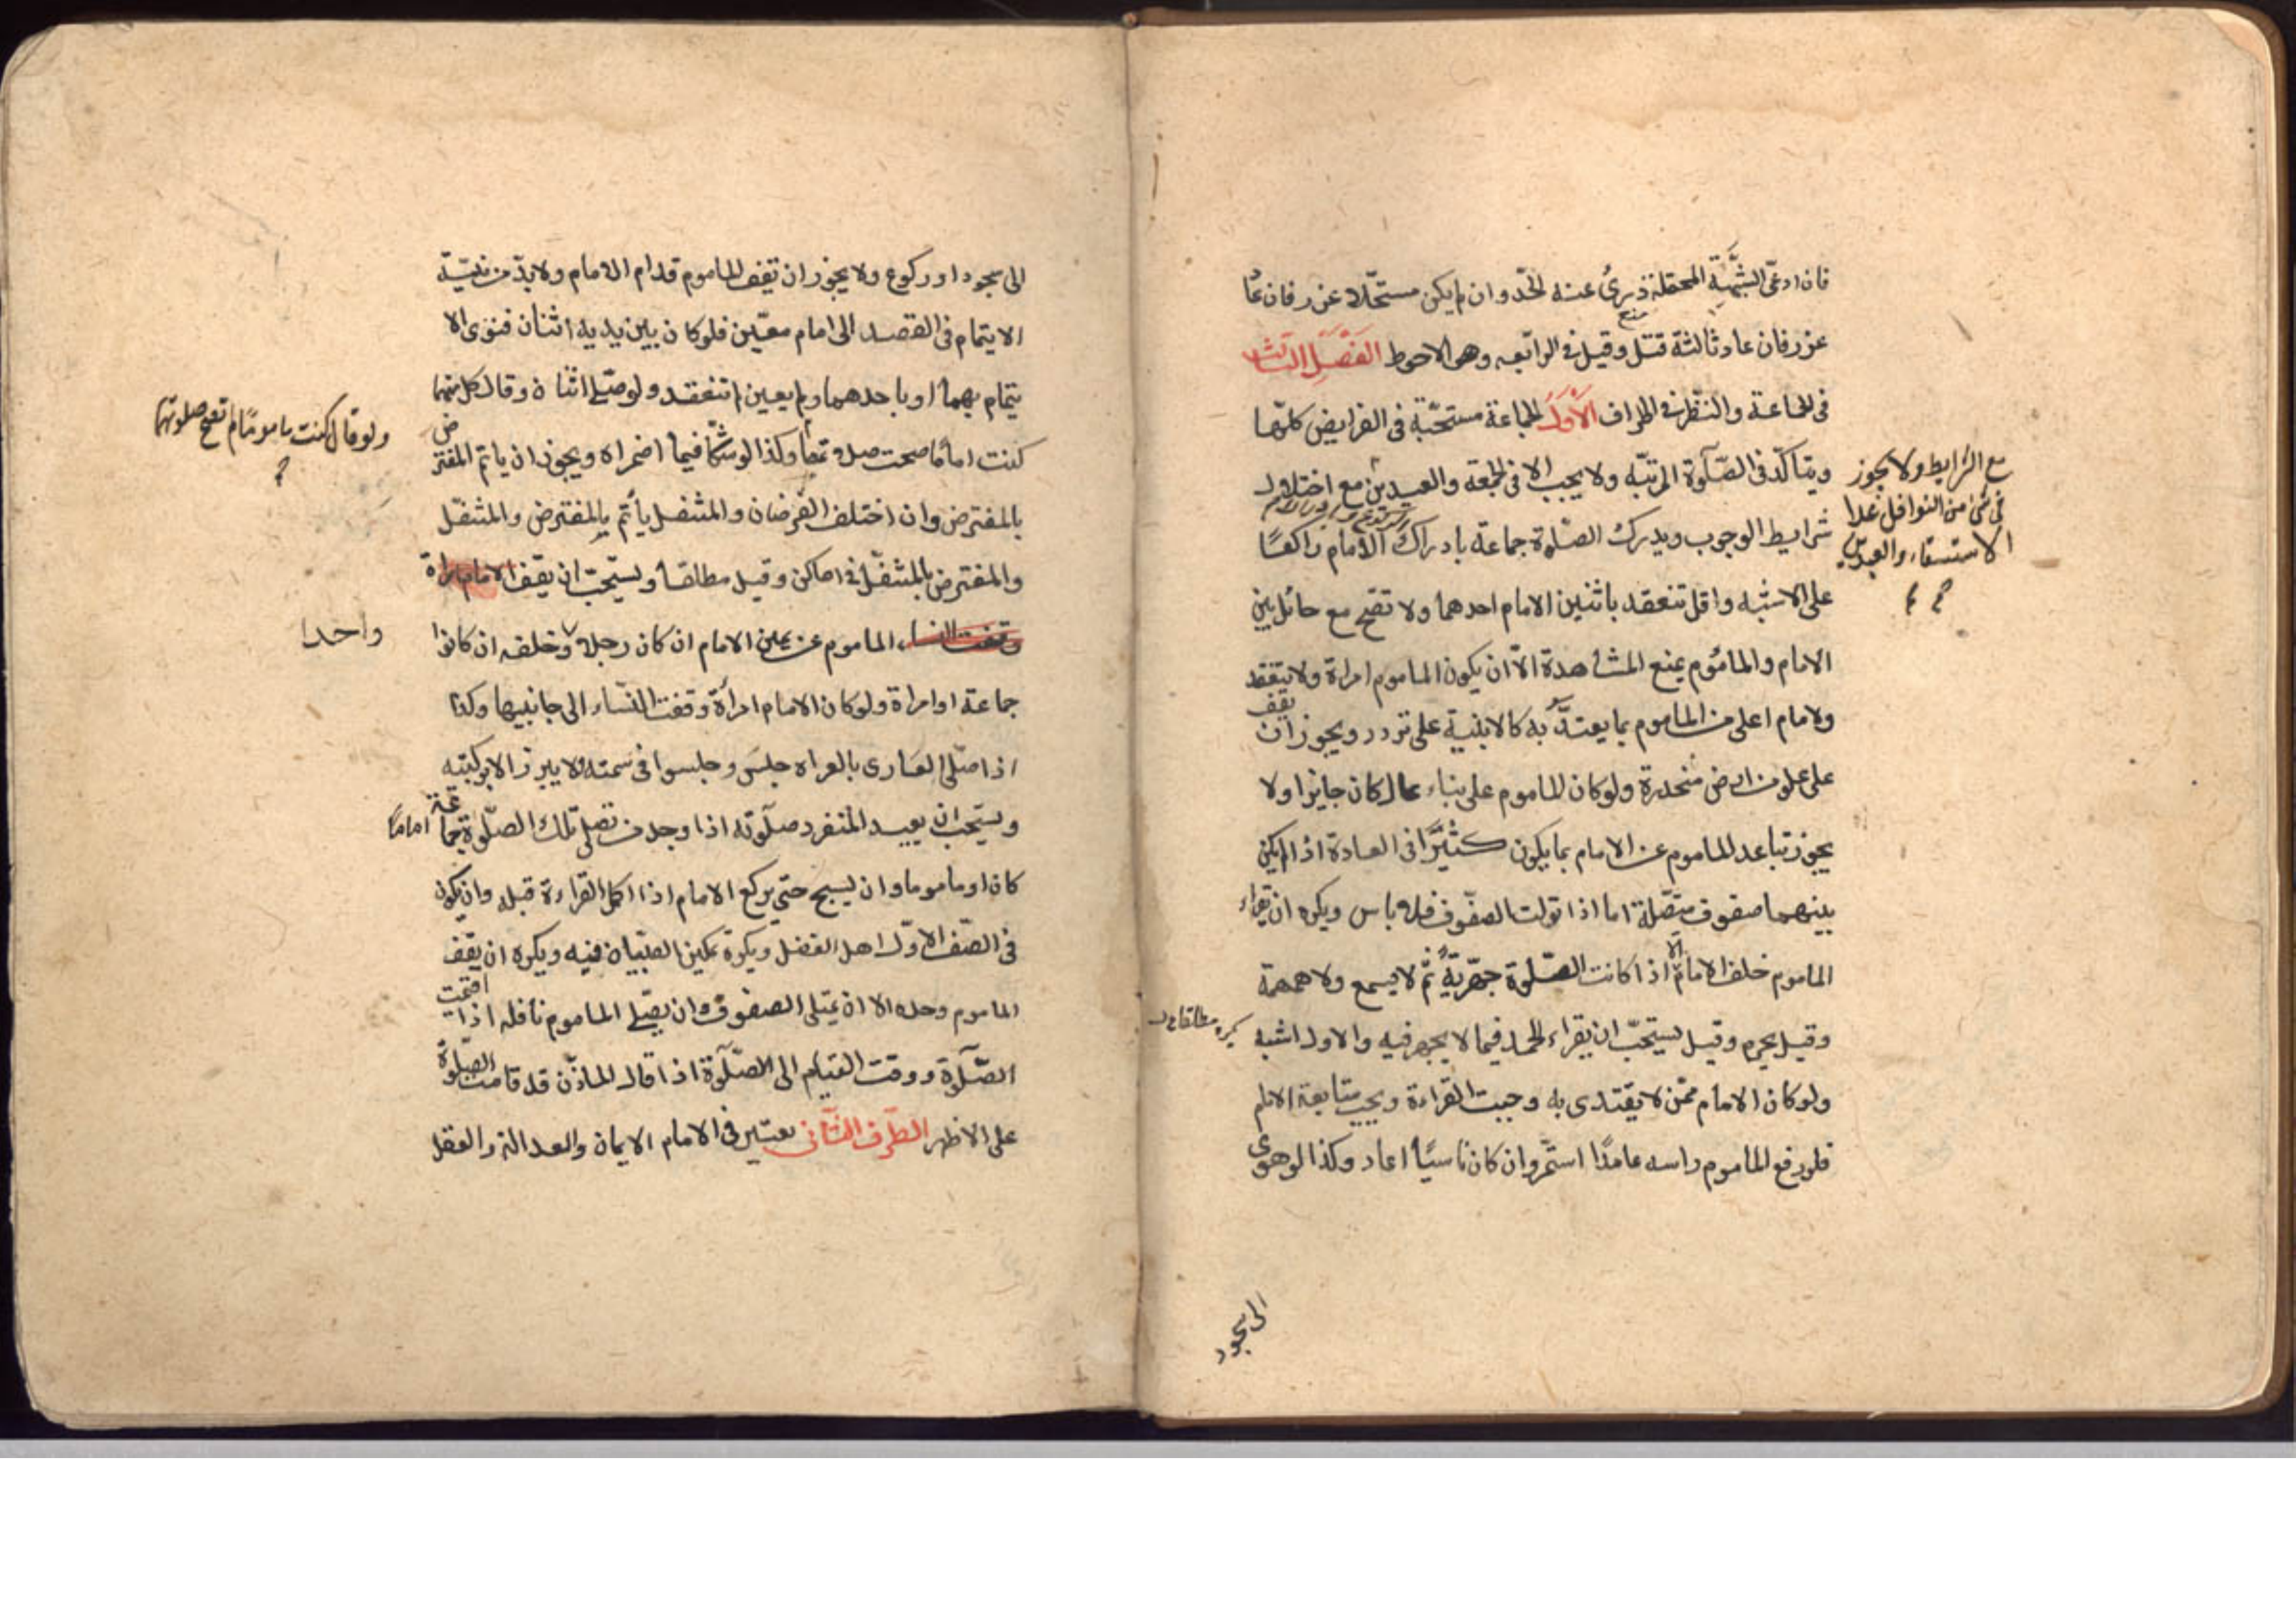 فان ادعى الشبهة المحتملة درئ عنه الحد وان لم يكن مستحلا عزر فان عاد
عزر فان عاد ثالثة قتل وقيل فى الرابعه وهو الاحوط الفصل الثالث
فى الجماعة والنظر فى اطراف الاول الجماعة مستحبة فى الفرايض كلها
ويتاكد فى الصلوة المرتبه ولا يجب الا فى الجمعة والعيدين مع اختلاف
شرايط الوجوب ويدرك الصلوة جماعة بادراك الامام راكعا
على الاشبه واقل تنعقد باثنين الامام احدهما ولا تصح مع حائل بين
الامام والماموم يمنع المشاهدة الا ان يكون الماموم امراة ولا ينعقد
ولامام اعلى من الماموم بما يعتد به كالابنية على تردد ويجوز ان يقف
على علو من ارض منحدرة ولو كان الماموم على بناء عال كان جايزا ولا
يجوز تباعد الماموم عن الامام بما يكون كثيرا فى العادة اذا لم يكن
بينهما صفوف متصلة اما اذا توالت الصفوف فلا باس ويكره ان يقراء
الماموم خلف الامام الا اذا كانت الصلوة جهرية ثم لا يسمع ولا همهمة
وقيل يحرم وقيل يستحب ان يقراء الحمد فيما لا يجهر فيه والاول اشبه
ولو كان الامام ممن لا يقتدى به وجبت القراءة ويجب متابعة الامام
فلو رفع الماموم راسه عامدا استمر وان كان ناسيا اعاد وكذا لو هوى
مع الشرايط ولا يجوز
فى شئ من النوافل عدا
الاستسقاء والعيدين
الى سجود
الى سجود او ركوع ولا يجوز ان تقف الماموم قدام الامام ولا بد من نية
الايتمام فى القصد الى امام معين فلو كان بين يديه اثنان فنوى الا
يتمام بهما او باحدهما ولم يعين لم تنعقد ولو صلى اثنان وقال كل منهما
كنت اماما صحت صلوتهما وكذا لو شكا فيما اضمراه ويجوز ان ياتم المفترض
بالمفترض وان اختلف الفرضان والمتنفل يأتم بالمفترض والمتنفل
والمفترض بالمتنفل فى اماكن وقيل مطلقا ويستحب ان يقف الامام امراة
وقفت النساء الماموم عن يمين الامام ان كان رجلا وخلفه ان كانوا
جماعة او امراة ولو كان الامام امرأة وقفت النساء الى جانبيها وكذا
اذا صلى العارى بالعراه جلس وجلسوا فى سمته ولا يبرز الا بركبتيه
ويستحب ان يعيد المنفرد صلوته اذا وجد من تصلى تلك الصلوة جماعة اماما
كان او ماموما وان يسبح حتى يركع الامام اذا اكمل القراءة قبله وان يكون
فى الصف الاول اهل الفضل ويكرة تمكين الصبيان فيه ويكره ان يقف
الماموم وحده الا ان تمتلى الصفوف وان يصلى الماموم نافله اذا اقيمت
الصلوة ووقت القيام الى الصلوة اذا قال الماذن قد قامت الصلوة
على الاظهر الطرف الثانى يعتبر فى الامام الايمان والعدالة والعقل
ولو قال كنت ماموما لم تصح صلوتهما
واحدا